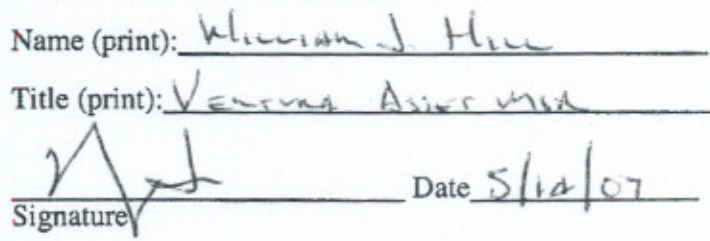 Name (print): William J. Hill
Title (print): Ventura Asset Mgr
Date 5/ /07
Signature